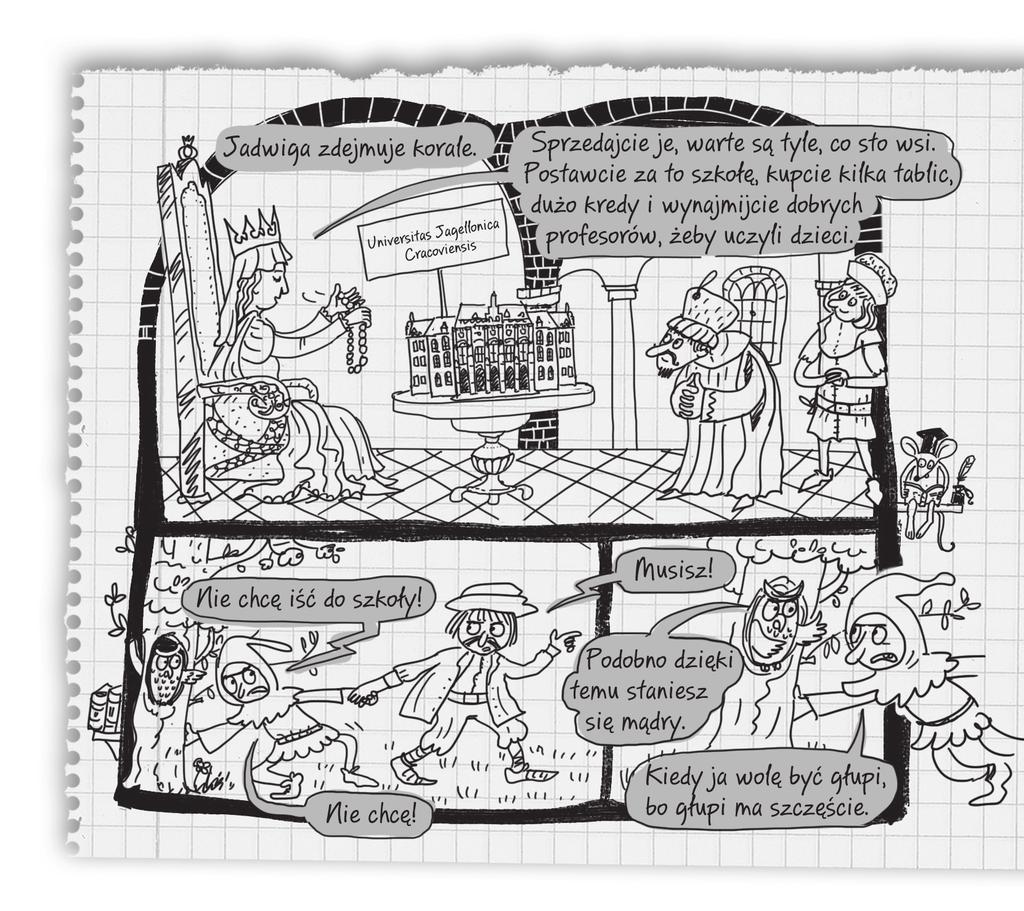 Jadwiga zdejmuje korale.
Sprzedajcie je, warte są tyle, co sto wsi.
Postawcie za to szkołę, kupcie kilka tablic,
dużo kredy i wynajmijcie dobrych
profesorów, żeby uczyli dzieci.
Universitas Jagellonica
Cracoviensis
Nie chcę iść do szkoły!
Musisz!
Podobno dzięki
temu staniesz
się mądry.
Nie chcę!
Kiedy ja wolę być głupi,
bo głupi ma szczęście.